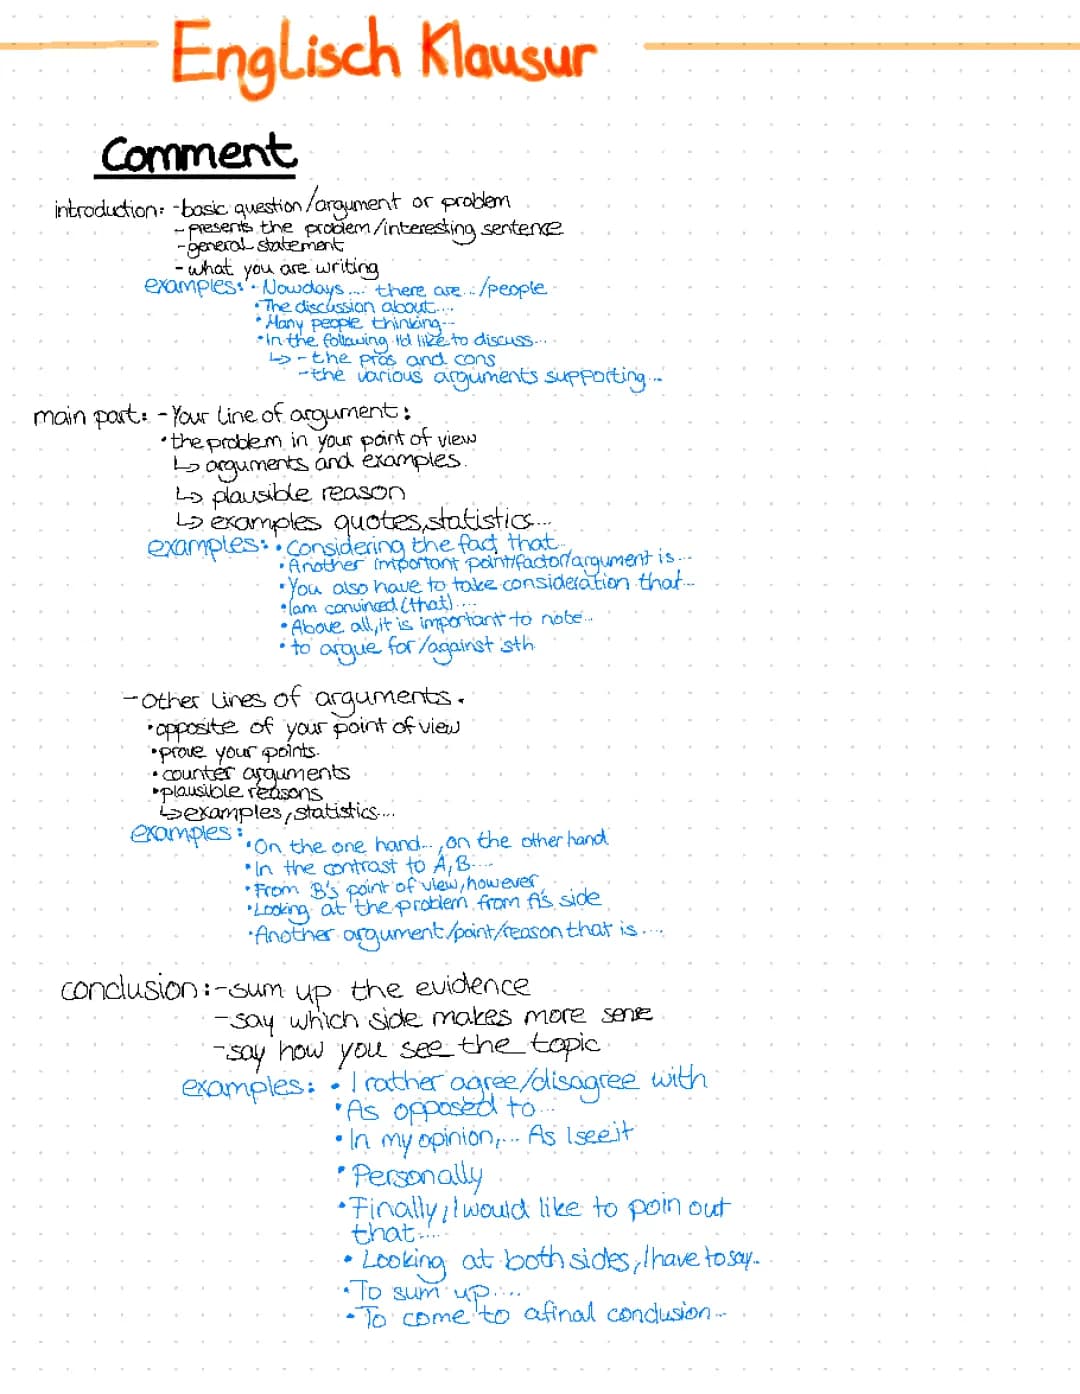 Englisch Klausur
Comment
introduction: -basic question/argument or problem
-presents the problem/interesting sentence
-general statement
-what you are writing
examples: • Nowdays.... there are.../people
• The discussion about....
• Many people thinking...
• In the following I'd like to discuss...
↳ - the pros and cons
- the various arguments supporting...
main part: - Your line of argument:
• the problem in your point of view
↳ arguments and examples.
↳ plausible reason
↳ examples quotes, statistics...
examples: • Considering the fact that...
• Another important point/factor/argument is...
• You also have to take consideration that...
• I am convinced (that)....
• Above all, it is important to note...
• to argue for/against sth
- Other lines of arguments.
• opposite of your point of view
• prove your points.
• counter arguments
• plausible reasons
↳ examples, statistics...
examples:
• On the one hand..., on the other hand
• In the contrast to A, B....
• From B's point of view, however,
• Looking at the problem from A's side
• Another argument/point/reason that is....
conclusion: -sum up the evidence
-say which side makes more sense
-say how you see the topic
examples: • I rather agree/disagree with
• As opposed to...
• In my opinion,... As I see it
• Personally
• Finally, I would like to poin out
that....
• Looking at both sides, I have to say..
• To sum up....
• To come to a final conclusion...